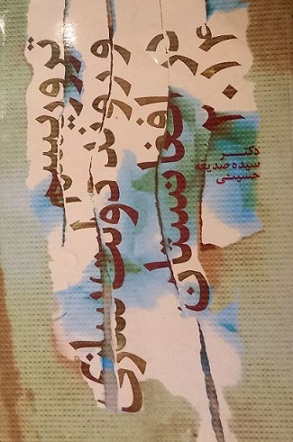 تروریسم
و روند دولت سازی
در افغانستان
دکتر
سیده صدیقه
حسینی